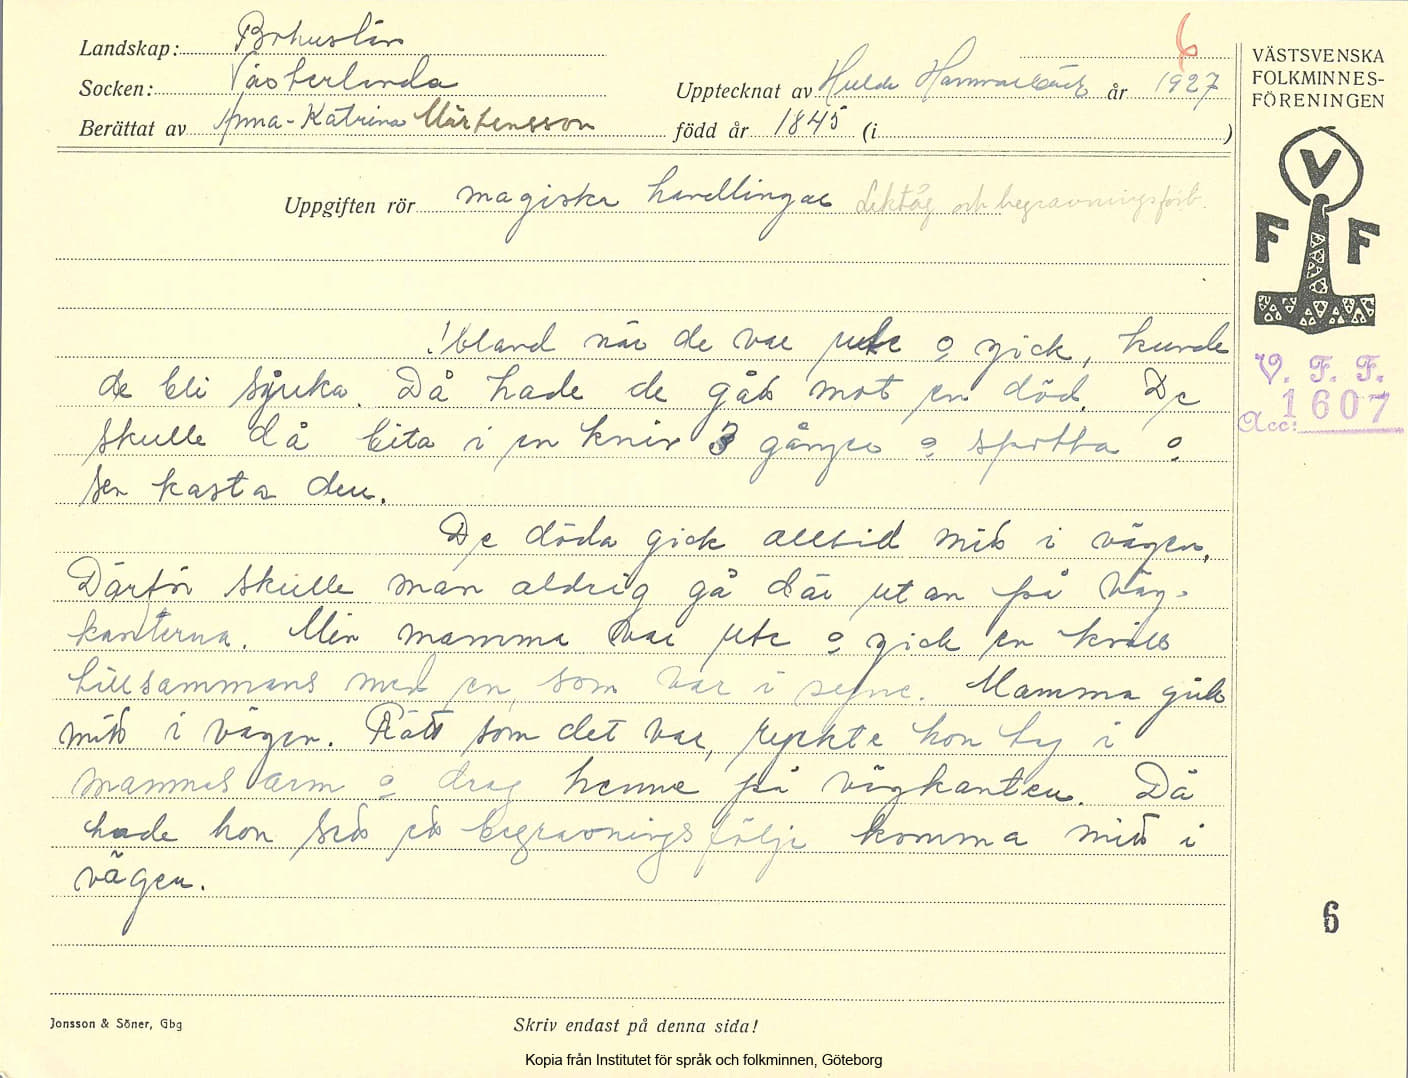 6
Landskap: Bohuslän
Socken: Västerlanda
Upptecknat av Hulda Hammarbäck år 1927
Berättat av Anna-Katrina Mårtensson född år 1845 (i )
VÄSTSVENSKA
FOLKMINNES-
FÖRENINGEN
Uppgiften rör magiska handlingar Liktåg och begravningsförb.
V
F F
Ibland när de var ute o gick, kunde
de bli sjuka. Då hade de gått mot en död. De
skulle då bita i en kniv 3 gånger o spotta o
sen kasta den.
De döda gick alltid mitt i vägen.
Därför skulle man aldrig gå där utan på väg-
kanterna. Min mamma var ute o gick en kväll
tillsammans med en, som var i syne. Mamma gick
mitt i vägen. Rätt som det var, ryckte hon tag i
mammas arm o drog henne på vägkanten. Då
hade hon sett ett begravningsfölje komma mitt i
vägen.
V. F. F.
Acc: 1607
6
Jonsson & Söner, Gbg
Skriv endast på denna sida!
Kopia från Institutet för språk och folkminnen, Göteborg